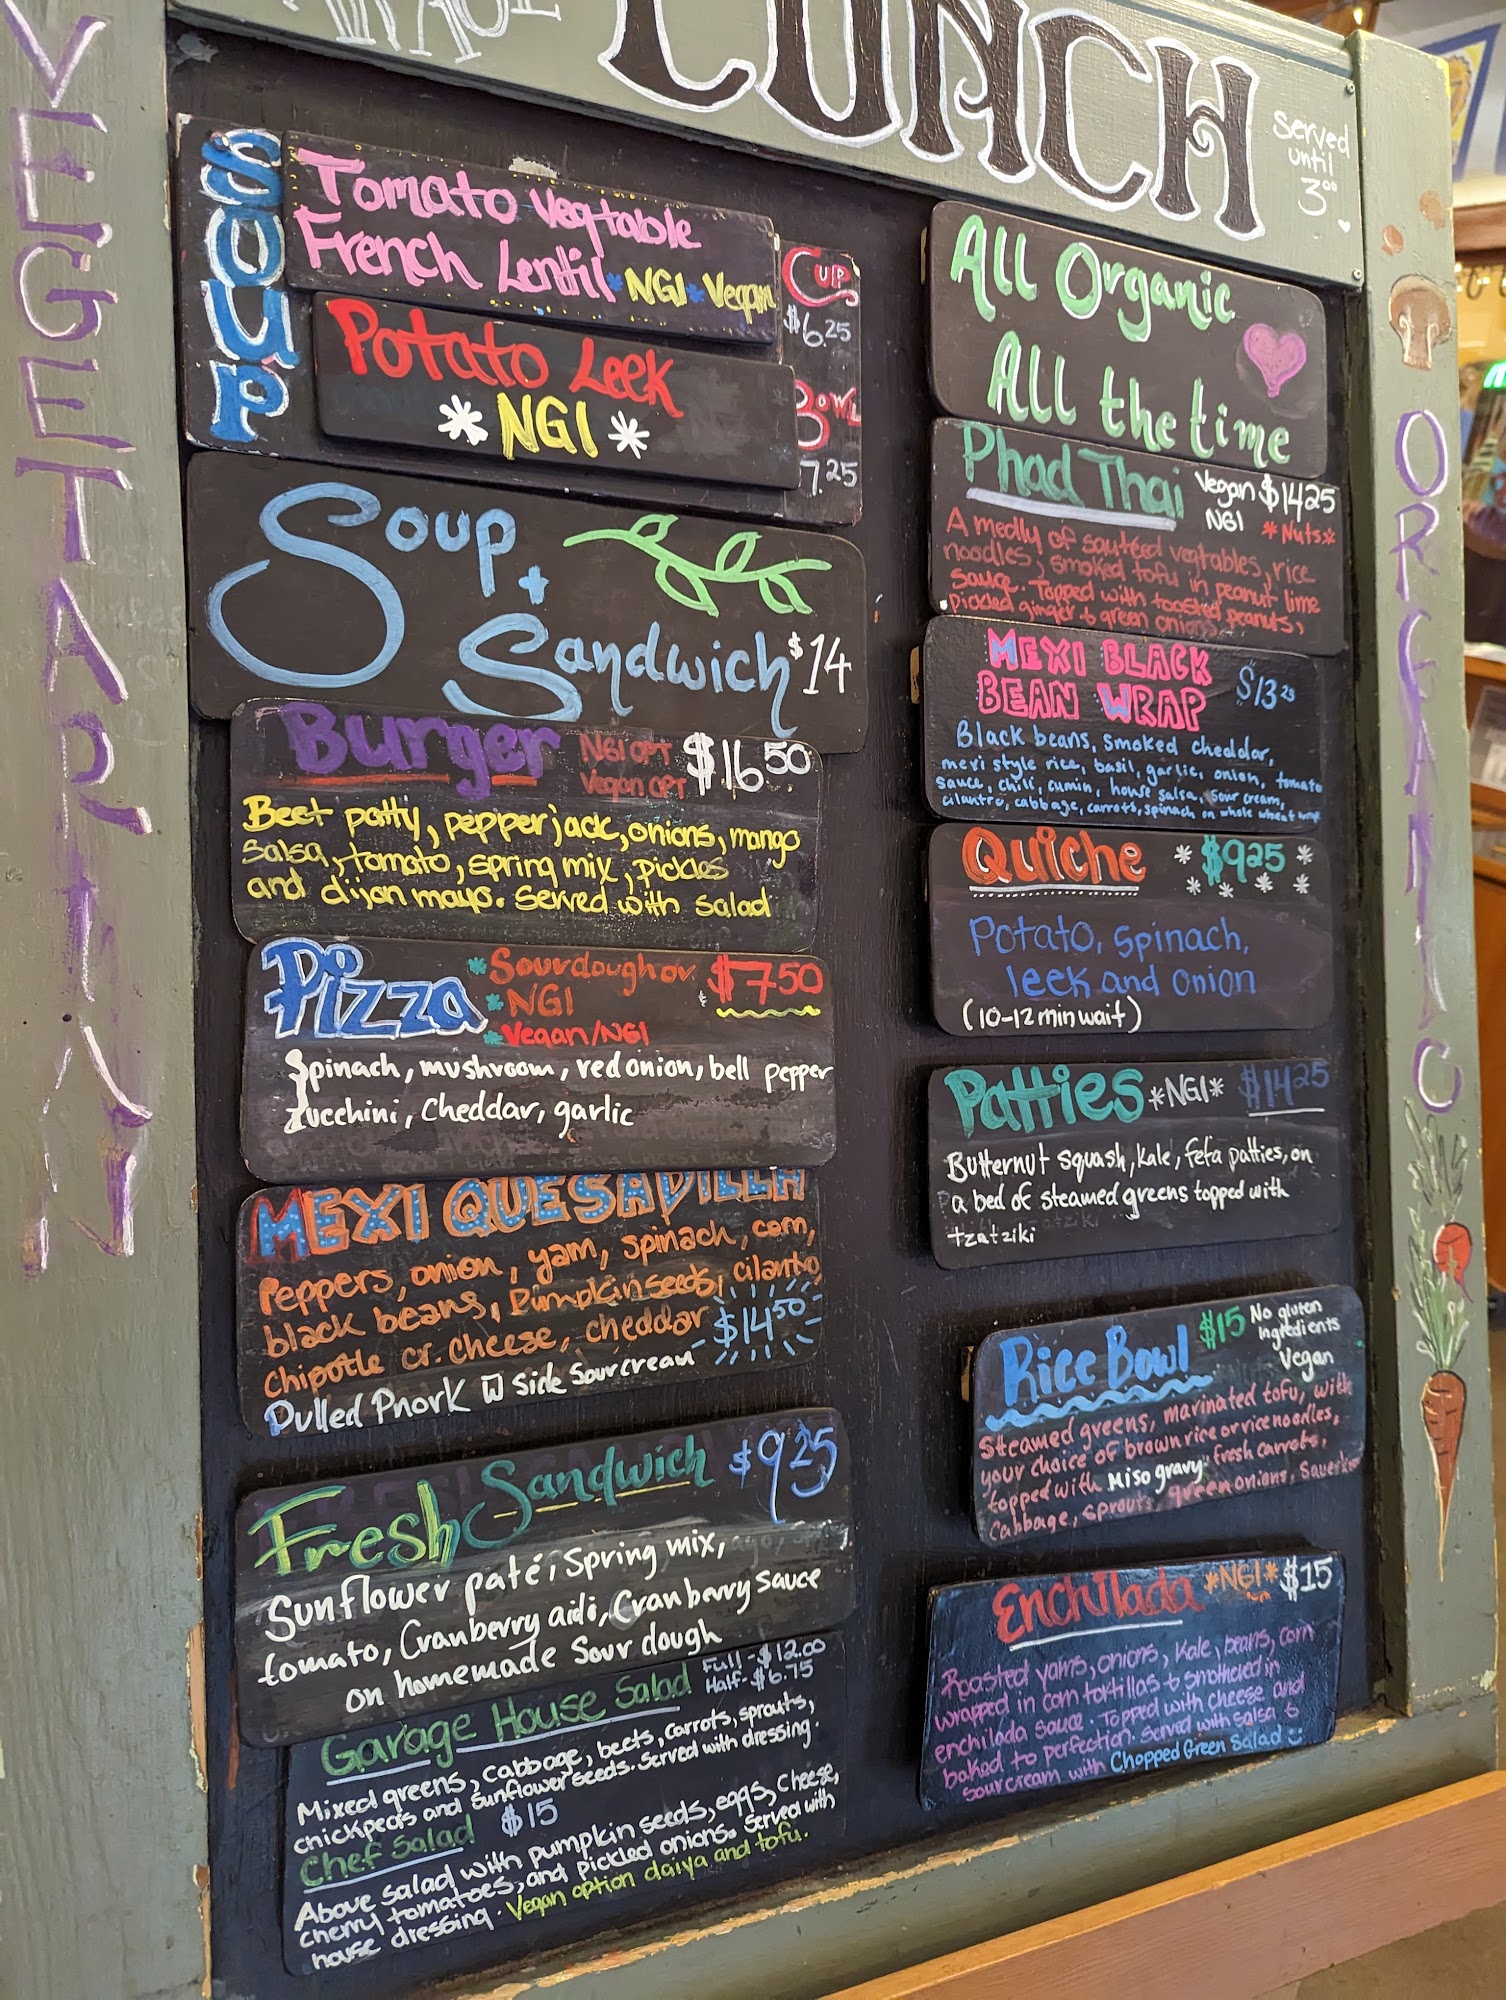 VEGETARIAN
LUNCH
Served
until
3⁰⁰
SOUP
Tomato Vegtable
French Lentil *NGI* Vegan
Potato Leek
*NGI*
CUP
$6.25
BOWL
7.25
Soup +
Sandwich $14
Burger NGI OPT $16.50
Vegan OPT
Beet patty, pepperjack, onions, mango
salsa, tomato, spring mix, pickles
and dijon mayo. Served with salad
Pizza *Sourdough or $7.50
*NGI
*Vegan/NGI
Spinach, mushroom, red onion, bell pepper
zucchini, Cheddar, garlic
MEXI QUESADILLA
Peppers, onion, yam, spinach, corn,
black beans, pumpkin seeds, cilantro,
chipotle cr. cheese, cheddar $14.50
Pulled Phork w side sour cream
Fresh Sandwich $9.25
Sunflower paté, spring mix,
tomato, Cranberry aioli, Cranberry sauce
on homemade Sour dough
Garage House Salad Full - $12.00
Half - $6.75
Mixed greens, cabbage, beets, carrots, sprouts,
chickpeas and sunflower seeds. Served with dressing.
Chef Salad $15
Above salad with pumpkin seeds, eggs, cheese,
cherry tomatoes, and pickled onions. Served with
house dressing. Vegan option daiya and tofu.
All Organic
All the time
Phad Thai Vegan $14.25
NGI *Nuts*
A medly of sautéed vegtables, rice
noodles, smoked tofu in peanut lime
sauce. Topped with toasted peanuts,
pickled ginger & green onions.
MEXI BLACK
BEAN WRAP $13.25
Black beans, smoked cheddar,
mexi style rice, basil, garlic, onion, tomato
sauce, chili, cumin, house salsa, sour cream,
cilantro, cabbage, carrots, spinach on whole wheat wrap
Quiche $9.25
Potato, spinach,
leek and onion
(10-12 min wait)
Patties *NGI* $14.25
Butternut squash, kale, feta patties, on
a bed of steamed greens topped with
tzatziki
Rice Bowl $15 No gluten
Ingredients
Vegan
Steamed greens, marinated tofu, with
your choice of brown rice or rice noodles,
topped with Miso gravy, fresh carrots,
Cabbage, sprouts, green onions,
Enchilada *NGI* $15
Roasted yams, onions, kale, beans, corn
wrapped in corn tortillas & smothered in
enchilada sauce. Topped with cheese and
baked to perfection. Served with salsa &
sour cream with Chopped Green Salad
ORGANIC